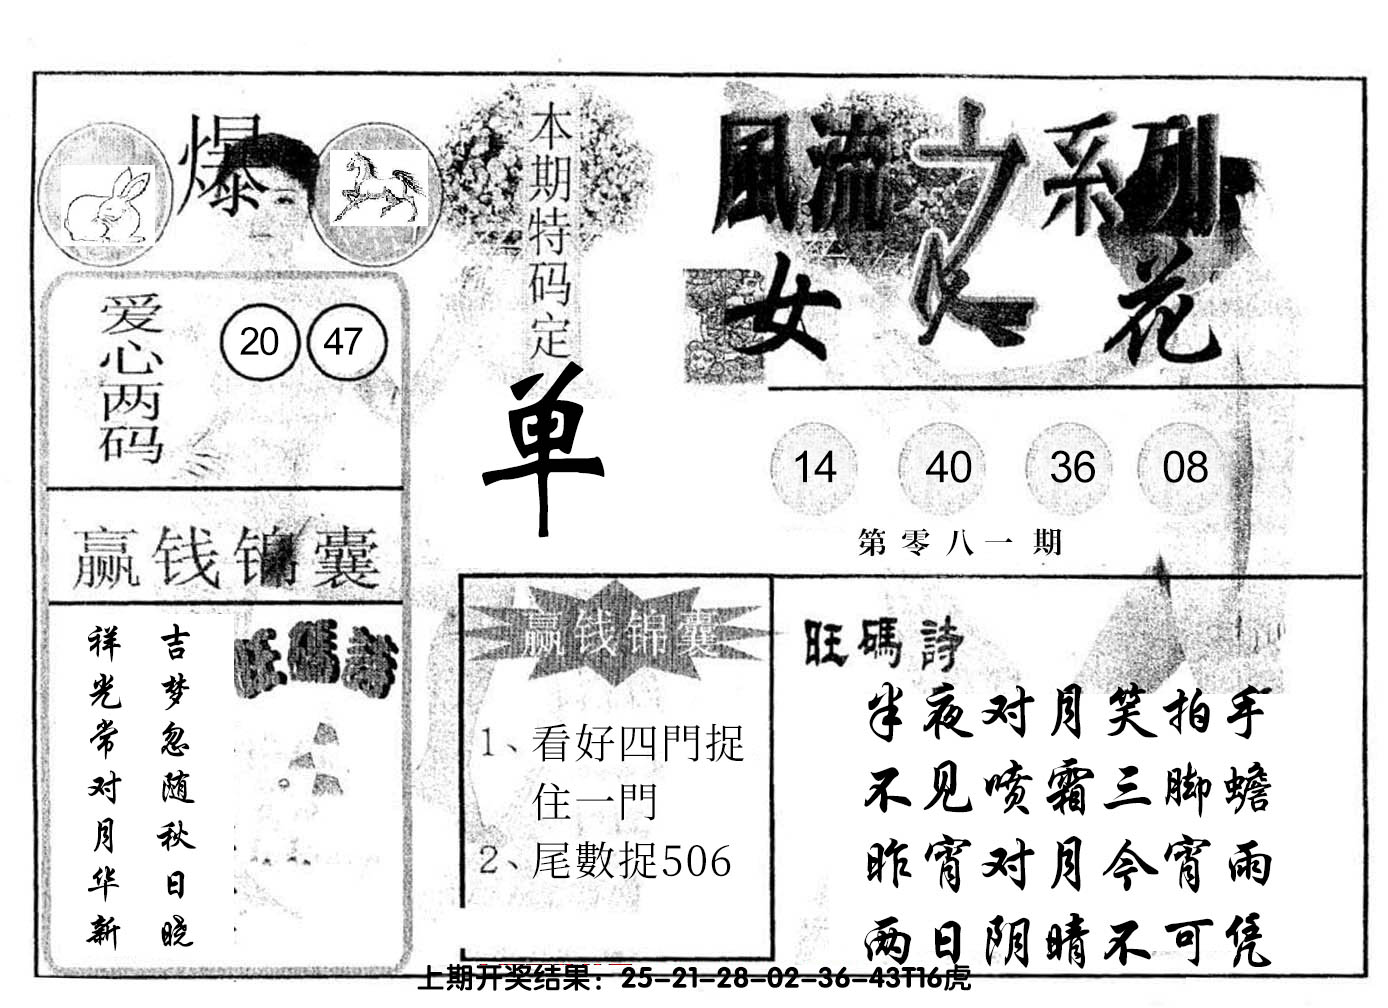 爆
本期特码定
单
風流之系列
女人花
爱心两码
20 47
14 40 36 08
第零八一期
赢钱锦囊
旺碼詩
吉梦忽随秋日晓
祥光常对月华新
赢钱锦囊
1、看好四門捉
住一門
2、尾數捉506
旺碼詩
半夜对月笑拍手
不见喷霜三脚蟾
昨宵对月今宵雨
两日阴晴不可凭
上期开奖结果：25-21-28-02-36-43T16虎